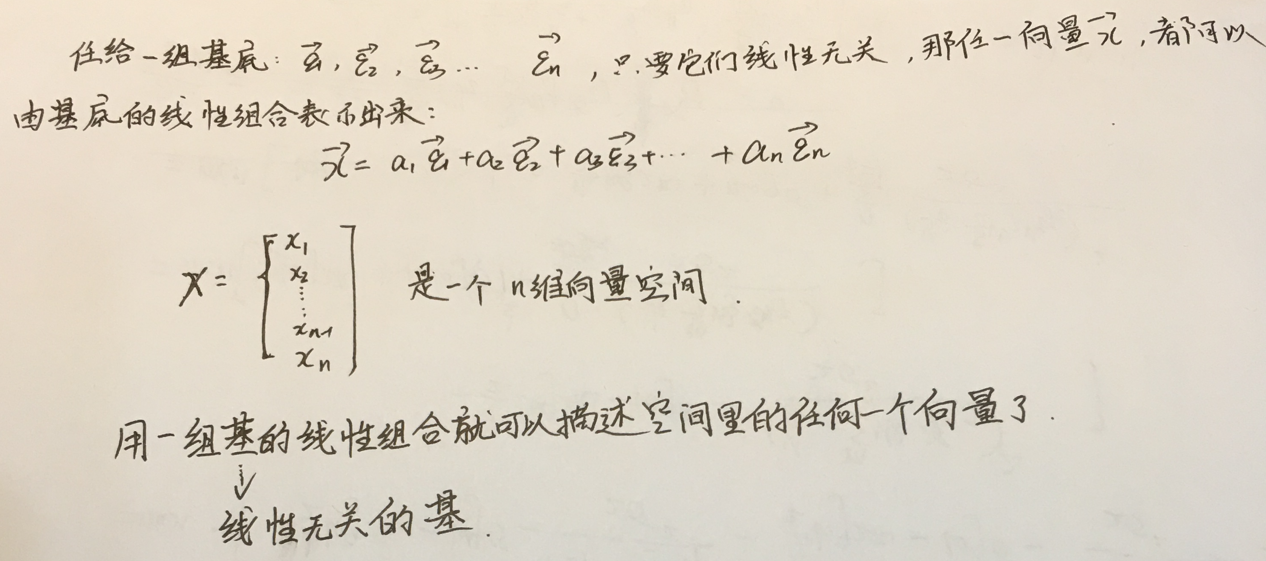 任给一组基底: ε⃗₁, ε⃗₂, ε⃗₃ … ε⃗ₙ, 只要它们线性无关, 那任一向量x⃗, 都可以
由基底的线性组合表示出来:
x⃗ = a₁ε⃗₁ + a₂ε⃗₂ + a₃ε⃗₃ + … + aₙε⃗ₙ
X = [x₁
x₂
⋮
xₙ₋₁
xₙ] 是一个 n维向量空间.
用一组基的线性组合就可以描述空间里的任何一个向量了.
↓
线性无关的基.